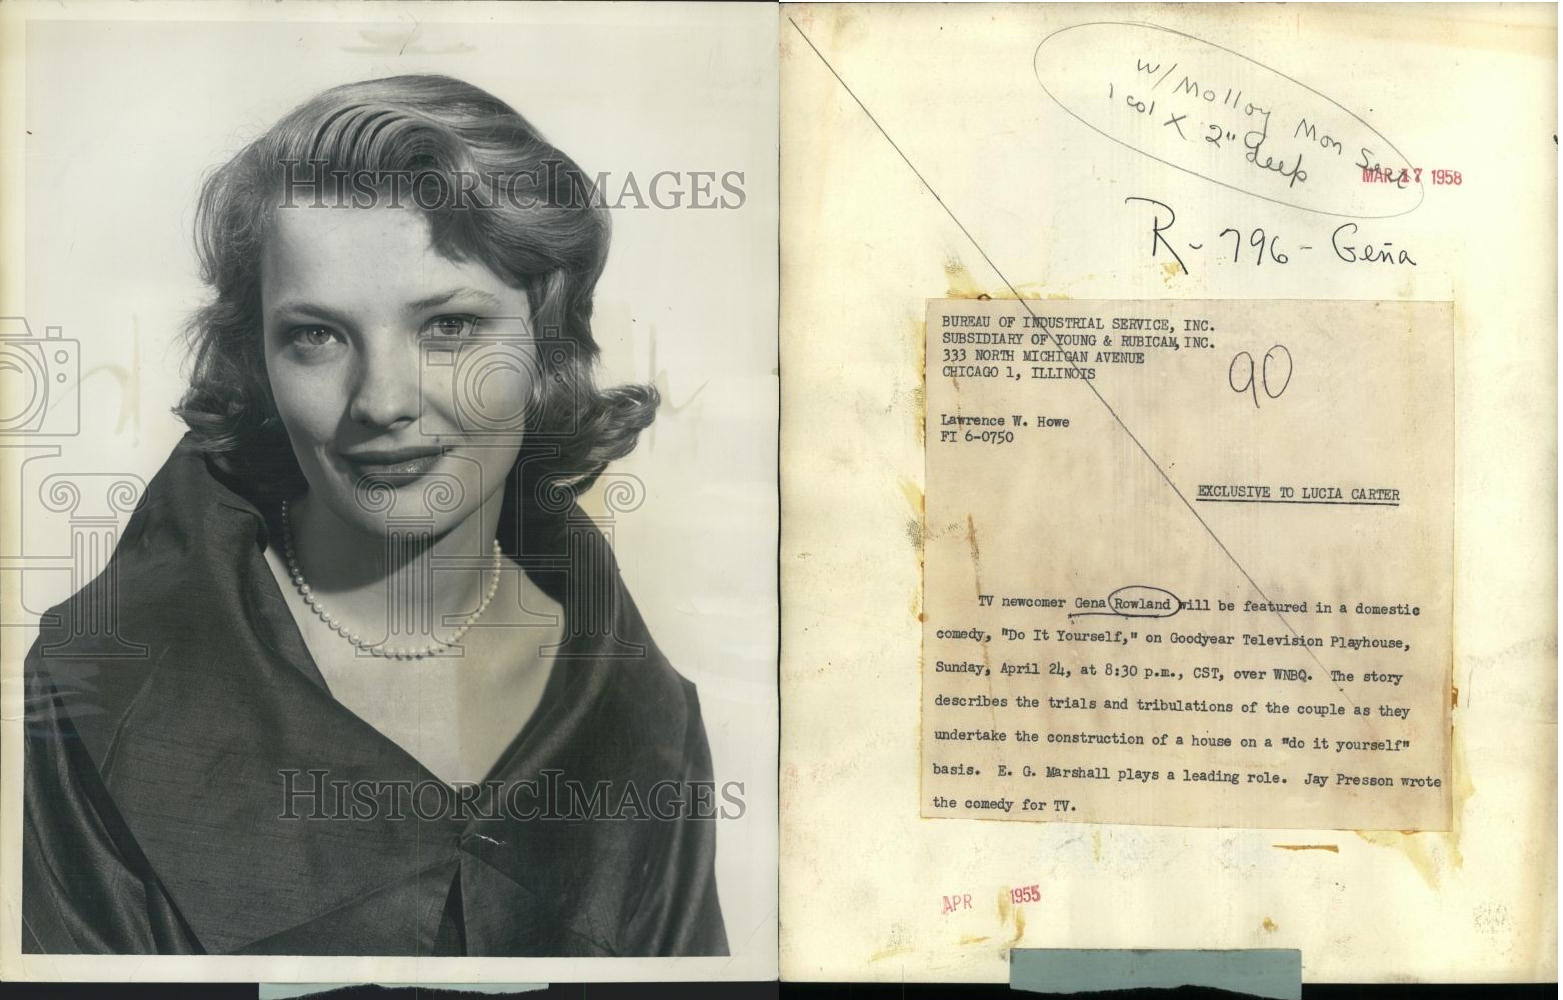 HISTORIC IMAGES
HISTORIC IMAGES
W/Molloy Mon
1 col X 2" deep
MAR 17 1958
R-796-Geña
BUREAU OF INDUSTRIAL SERVICE, INC.
SUBSIDIARY OF YOUNG & RUBICAM, INC.
333 NORTH MICHIGAN AVENUE
CHICAGO 1, ILLINOIS
90
Lawrence W. Howe
FI 6-0750
EXCLUSIVE TO LUCIA CARTER
TV newcomer Gena Rowland will be featured in a domestic
comedy, "Do It Yourself," on Goodyear Television Playhouse,
Sunday, April 24, at 8:30 p.m., CST, over WNBQ. The story
describes the trials and tribulations of the couple as they
undertake the construction of a house on a "do it yourself"
basis. E. G. Marshall plays a leading role. Jay Presson wrote
the comedy for TV.
APR 1955